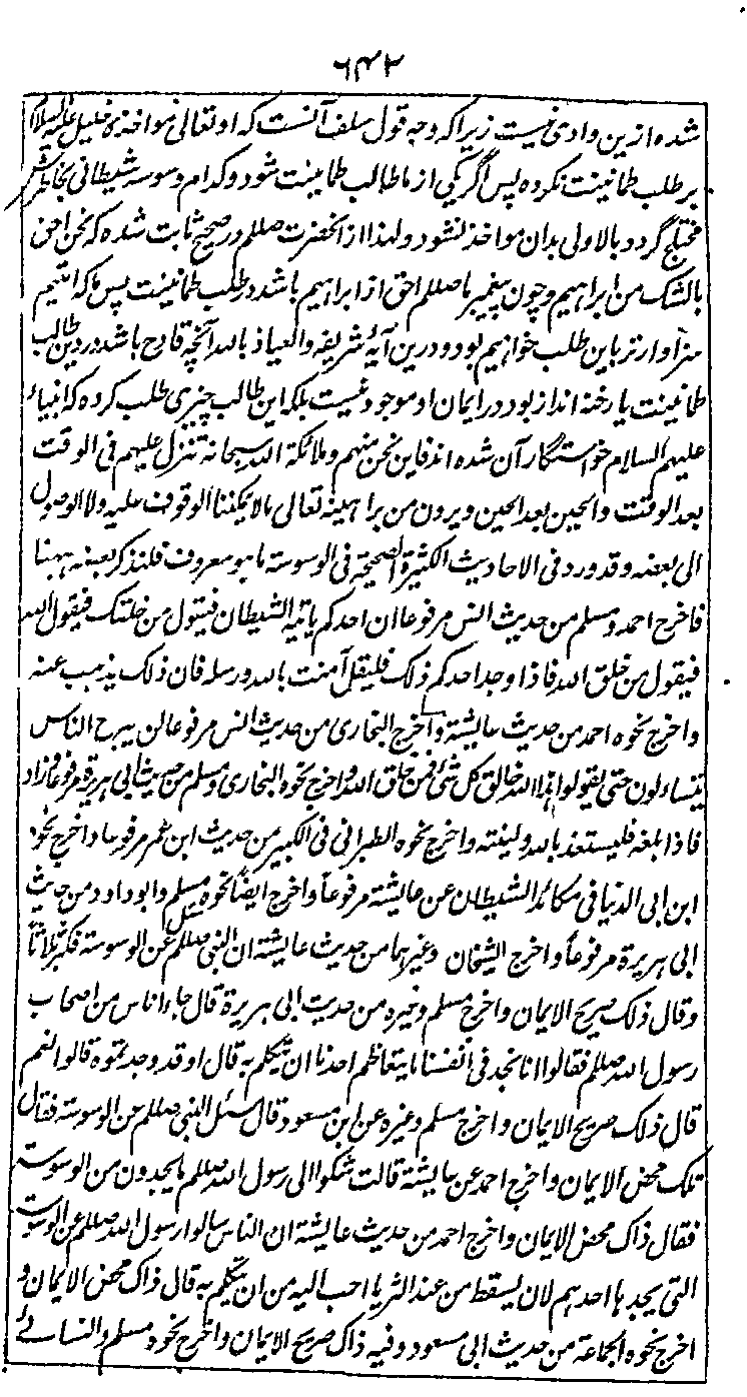 ۶۴۲
شده ازین وادی نیست زیرا که وجه قول سلف آنست که او تعالی مواخذه خلیل علیه السلام
بر طلب طمانینت نکرده پس اگر یکی از ما طالب طمانینت شود و کدام وسوسه شیطانی بخاطرش
مختلج گردد بالاولی بدان مواخذ نشود و لهذا از آنحضرت صللم در صحیح ثابت شده که نحن احق
بالشک من ابراهیم و چون پیغمبر ما صللم احق از ابراهیم باشد در طلب طمانینت پس ما که امتیم
سزاوارتر باین طلب خواهیم بود و درین آیهٔ شریفه والعیاذ بالله آنچه قادح باشد در دین طالب
طمانینت یا رخنه انداز بود در ایمان او موجود نیست بلکه این طالب چیزی طلب کرده که انبیاء
علیهم السلام خواستگار آن شده اند فاین نحن منهم و ملائکة الله سبحانه تتنزل علیهم فی الوقت
بعد الوقت والحین بعد الحین ویرون من براهینه تعالی مالا یمکننا الوقوف علیه ولا الوصول
الی بعضه وقد ورد فی الاحادیث الکثیرة الصحیحة فی الوسوسة ما هو معروف فلنذکر بعضه ههنا
فاخرج احمد و مسلم من حدیث انس مرفوعا ان احدکم یاتیه الشیطان فیقول من خلقک فیقول الله
فیقول من خلق الله فاذا وجد احدکم ذلک فلیقل آمنت بالله ورسله فان ذلک یذهب عنه
واخرج نحوه احمد من حدیث عایشة واخرج البخاری من حدیث انس مرفوعا لن یبرح الناس
یتساءلون حتی یقولوا هذا الله خالق کل شئ فمن خلق الله واخرج نحوه البخاری و مسلم من حدیث ابی هریرة مرفوعا وزاد
فاذا بلغه فلیستعذ بالله ولینته واخرج نحوه الطبرانی فی الکبیر من حدیث ابن عمر مرفوعا واخرج نحوه
ابن ابی الدنیا فی مکائد الشیطان عن عایشة مرفوعاً واخرج ایضاً نحوه مسلم وابو داود من حدیث
ابی هریرة مرفوعاً واخرج الشیخان وغیرهما من حدیث عایشة ان النبی صللم سئل عن الوسوسة فکبر ثلاثاً
وقال ذلک صریح الایمان واخرج مسلم وغیره من حدیث ابی هریرة قال جاء اناس من اصحاب
رسول الله صللم فقالوا انا نجد فی انفسنا ما یتعاظم احدنا ان یتکلم به قال او قد وجدتموه قالوا نعم
قال ذلک صریح الایمان واخرج مسلم وغیره عن ابن مسعود قال سئل النبی صللم عن الوسوسة فقال
تلک محض الایمان واخرج احمد عن عایشة قالت شکوا الی رسول الله صللم ما یجدون من الوسوسة
فقال ذاک محض الایمان واخرج احمد من حدیث عایشة ان الناس سالوا رسول الله صللم عن الوسوسة
التی یجدها احدهم لان یسقط من عند الثریا احب الیه من ان یتکلم به قال ذاک محض الایمان و
اخرج نحوه الجماعة من حدیث ابی مسعود وفیه ذاک صریح الایمان واخرج نحوه مسلم والنسائے